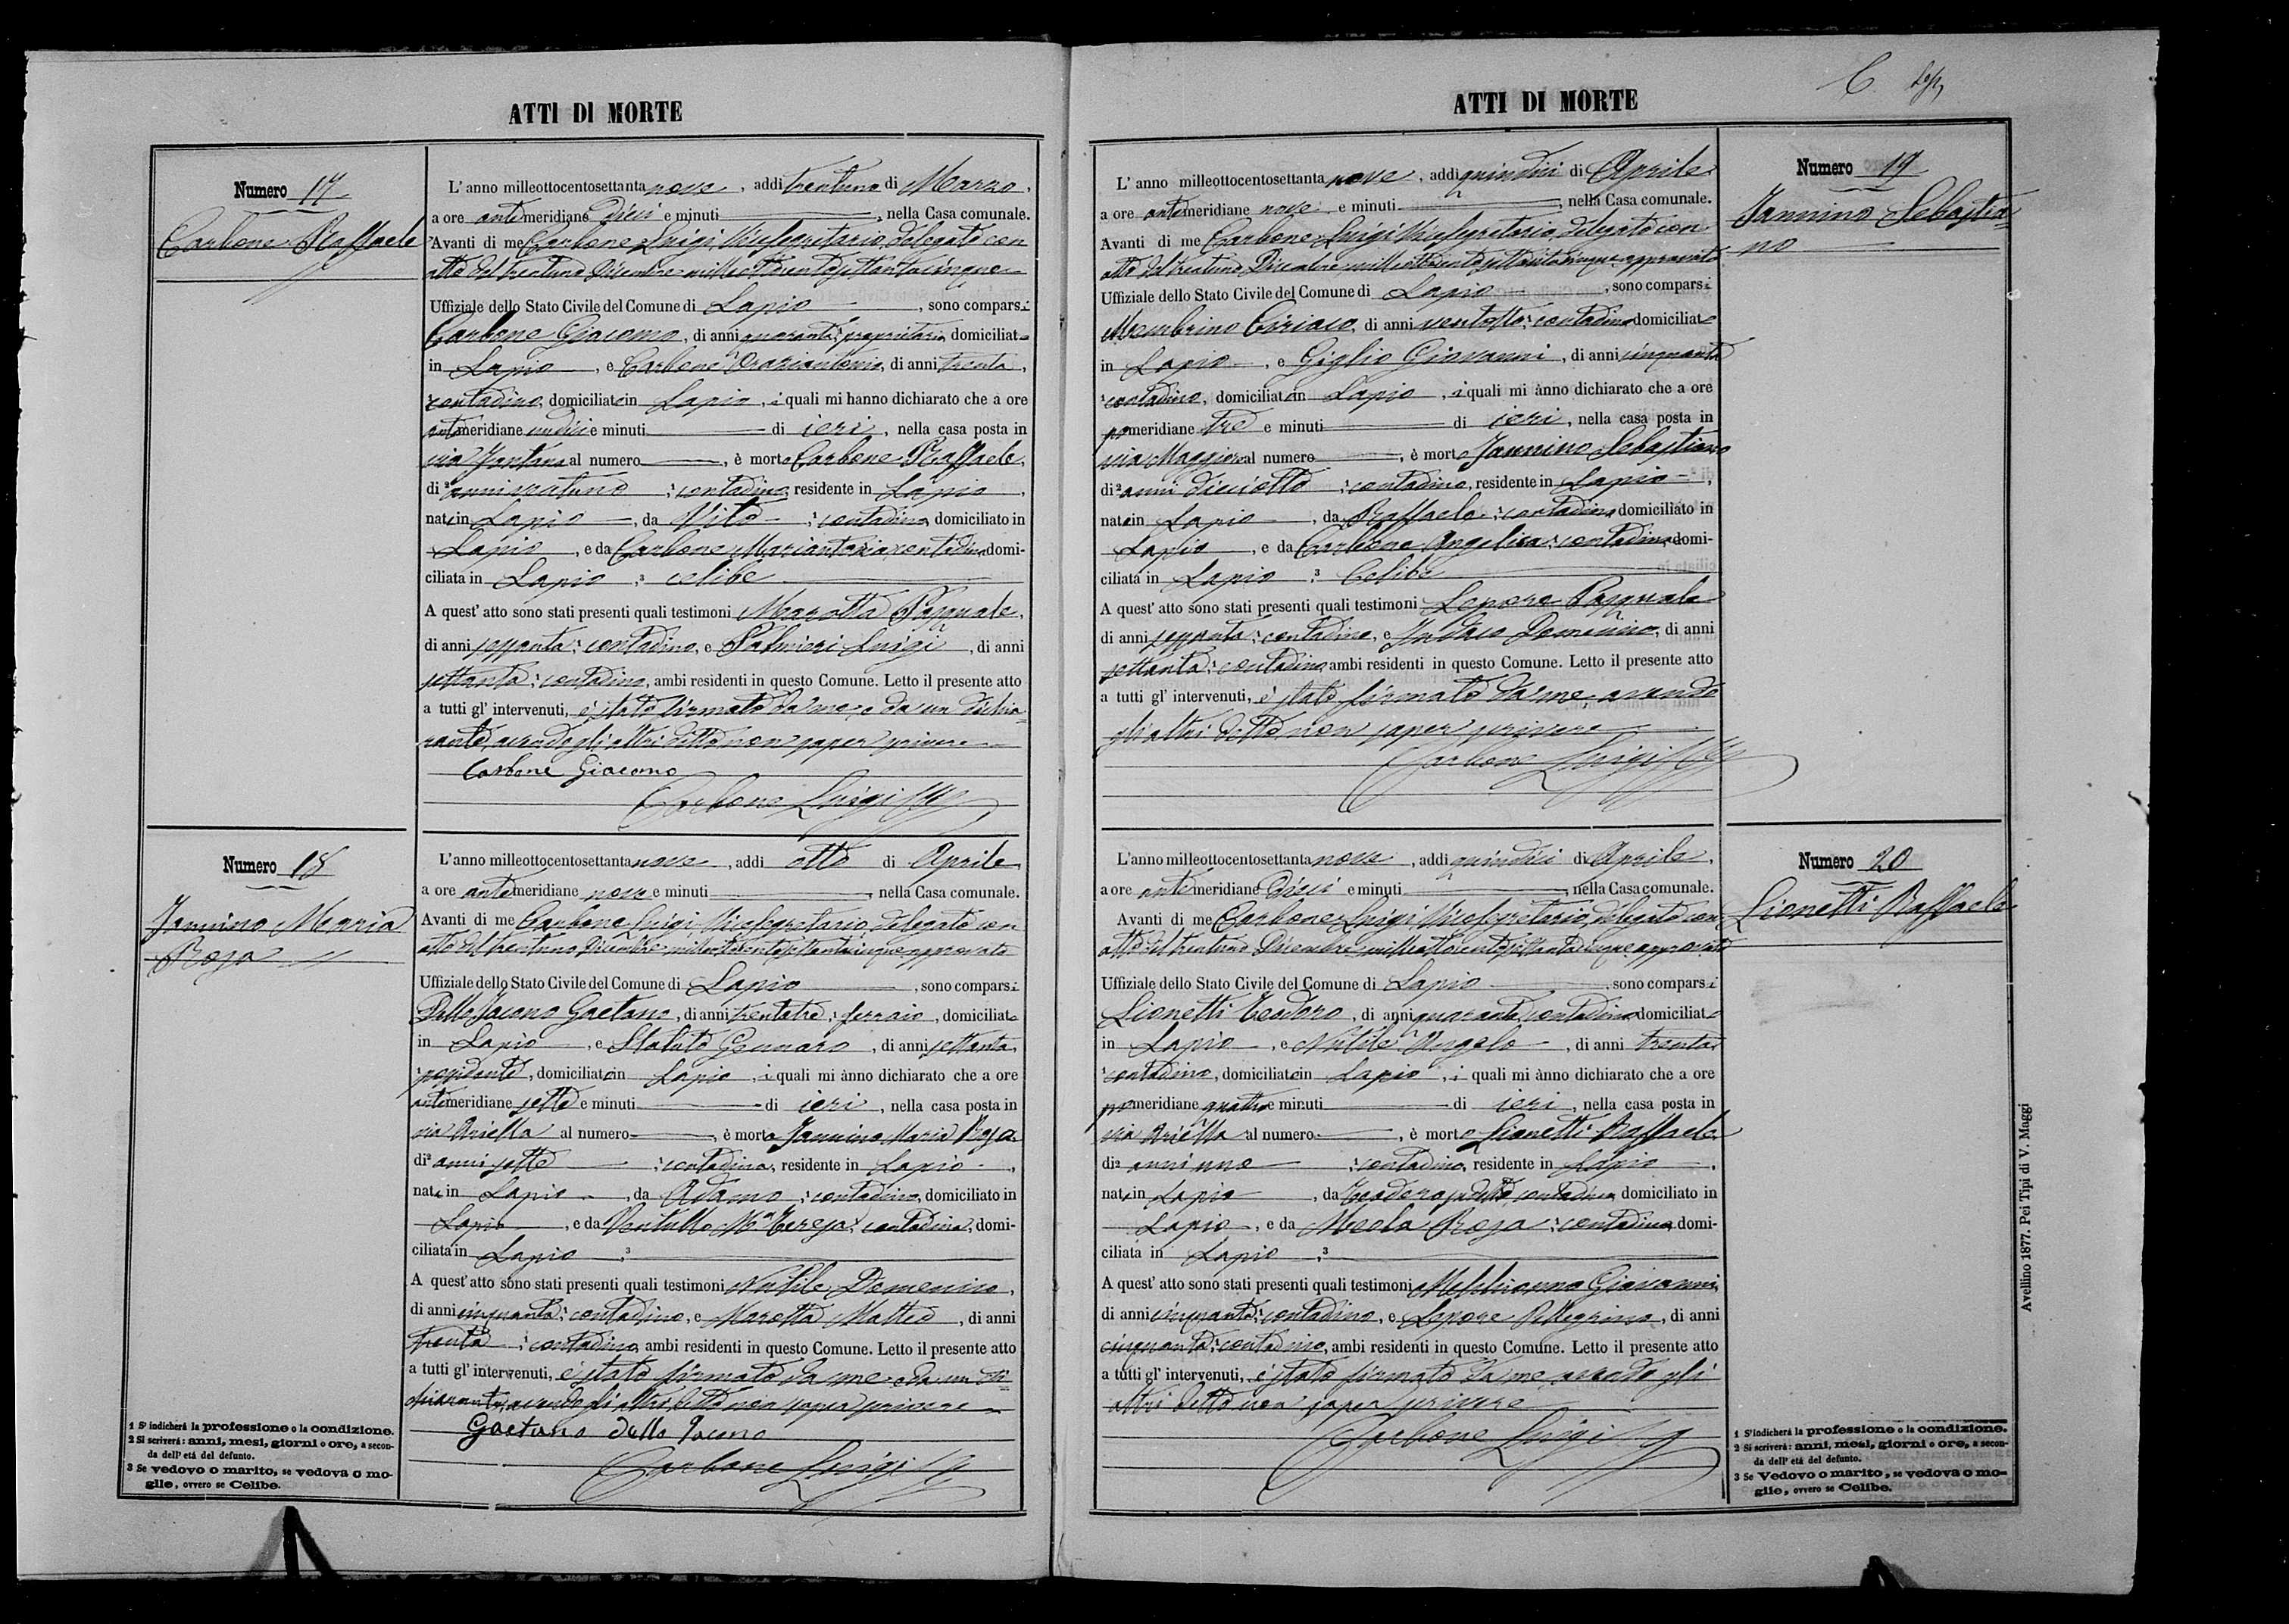 ATTI DI MORTE
Numero 17
Carbone Raffaele
L'anno milleottocentosettanta nove, addi trentuno di Marzo,
a ore antimeridiane dieci e minuti, nella Casa comunale.
Avanti di me Carbone Luigi Vicesegretario, delegato con
atto del trentuno Dicembre milleottocentosettantacinque
Uffiziale dello Stato Civile del Comune di Lapio, sono comparsi
Carbone Giacomo, di anni quaranta, proprietario domiciliato
in Lapio, e Carbone Oraziantonio, di anni trenta,
contadino, domiciliato in Lapio, i quali mi hanno dichiarato che a ore
antimeridiane undici e minuti di ieri, nella casa posta in
via Fontana al numero, è morto Carbone Raffaele,
di 2 anni ventuno contadino, residente in Lapio,
nato in Lapio, da Vito contadino, domiciliato in
Lapio, e da Carbone Mariantonia contadina domi-
ciliata in Lapio 3 celibe
A quest' atto sono stati presenti quali testimoni Marotta Pasquale,
di anni sessanta, contadino, e Palmieri Luigi, di anni
settanta, contadino, ambi residenti in questo Comune. Letto il presente atto
a tutti gl' intervenuti, è stato firmato da me e da un dichia-
rante, avendo gli altri detto non saper scrivere
Carbone Giacomo
Carbone Luigi
Numero 18
Jannino Maria
Rosa
L'anno milleottocentosettanta nove, addi otto di Aprile
a ore antimeridiane nove e minuti, nella Casa comunale.
Avanti di me Carbone Luigi Vicesegretario, delegato con
atto del trentuno Dicembre milleottocentosettantacinque approvato
Uffiziale dello Stato Civile del Comune di Lapio, sono comparsi
Dello Jacono Gaetano, di anni trentatre, ferraio, domiciliato
in Lapio, e Staluto Gennaro, di anni settanta,
possidente, domiciliato in Lapio, i quali mi ànno dichiarato che a ore
antimeridiane sette e minuti di ieri, nella casa posta in
via Ariella al numero, è morta Jannino Maria Rosa
di 2 anni sette contadina, residente in Lapio,
nata in Lapio, da Adamo, contadino, domiciliato in
Lapio, e da Ma Teresa, contadina, domi-
ciliata in Lapio 3
A quest' atto sono stati presenti quali testimoni Nutile Domenico,
di anni cinquanta, contadino, e Marotta Matteo, di anni
trenta, contadino, ambi residenti in questo Comune. Letto il presente atto
a tutti gl' intervenuti, è stato firmato da me e da un di-
chiarante, avendo gli altri detto non saper scrivere
Gaetano dello Jacono
Carbone Luigi
1 S' indicherà la professione o la condizione.
2 Si scriverà: anni, mesi, giorni o ore, a secon-
da dell' età del defunto.
3 Se vedovo o marito, se vedova o mo-
glie, ovvero se Celibe.
ATTI DI MORTE
Numero 19
Jannino Sebastia-
no
L' anno milleottocentosettanta nove, addì quindici di Aprile
a ore antimeridiane nove e minuti, nella Casa comunale.
Avanti di me Carbone Luigi Vicesegretario, delegato con
atto del trentuno Dicembre milleottocentosettantacinque approvato
Uffiziale dello Stato Civile del Comune di Lapio, sono comparsi
Membrino Ciriaco, di anni ventotto, contadino domiciliato
in Lapio, e Giglio Giovanni, di anni cinquanta
contadino, domiciliato in Lapio, i quali mi ànno dichiarato che a ore
pomeridiane tre e minuti di ieri, nella casa posta in
via Maggiore al numero, è morto Jannino Sebastiano
di 2 anni diciotto contadino, residente in Lapio,
nato in Lapio, da Raffaele, contadino domiciliato in
Lapio, e da Carbone Angelica, contadina, domi-
ciliata in Lapio 3 Celibe
A quest' atto sono stati presenti quali testimoni Lepore Pasquale
di anni sessanta, contadino, e Domenico, di anni
settanta, contadino, ambi residenti in questo Comune. Letto il presente atto
a tutti gl' intervenuti, è stato firmato da me, avendo
gli altri detto non saper scrivere
Carbone Luigi
Numero 20
Lionetti Raffaele
L'anno milleottocentosettanta nove, addi quindici di Aprile,
a ore antimeridiane dieci e minuti, nella Casa comunale.
Avanti di me Carbone Luigi Vicesegretario, delegato con
atto del trentuno Dicembre milleottocentosettantacinque approvato
Uffiziale dello Stato Civile del Comune di Lapio, sono comparsi
Lionetti Teodoro, di anni quaranta, contadino domiciliato
in Lapio, e Nutile Angelo, di anni trenta
contadino, domiciliato in Lapio, i quali mi ànno dichiarato che a ore
pomeridiane quattro e minuti di ieri, nella casa posta in
via Ariella al numero, è morto Lionetti Raffaele
di 2 anni uno contadino, residente in Lapio,
nato in Lapio, da Teodoro sudetto contadino domiciliato in
Lapio, e da Meola Rosa, contadina, domi-
ciliata in Lapio 3
A quest' atto sono stati presenti quali testimoni Giovanni
di anni cinquanta, contadino, e Lepore Pellegrino, di anni
cinquanta, contadino, ambi residenti in questo Comune. Letto il presente atto
a tutti gl' intervenuti, è stato firmato da me, avendo gli
altri detto non saper scrivere
Carbone Luigi
1 S'indicherà la professione o la condizione.
2 Si scriverà: anni, mesi, giorni o ore, a secon-
da dell' età del defunto.
3 Se Vedovo o marito, se vedova o mo-
glie, ovvero se Celibe.
Avellino 1877. Pei Tipi di V. Maggi